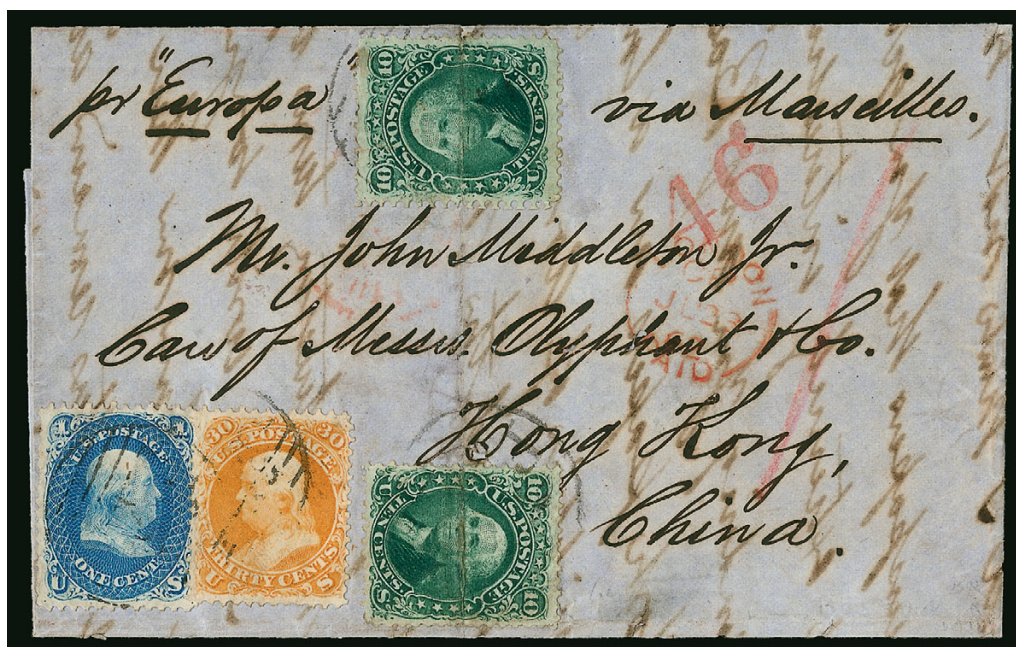 pr "Europa"
via Marseilles.
10 U.S. POSTAGE 10
TEN CENTS
U S
46
Mr. John Middleton Jr.
Care of Messrs. Olyphant & Co.
Hong Kong,
China.
PAID
1 U.S. POSTAGE 1
ONE CENT
U S
30 U.S. POSTAGE 30
THIRTY CENTS
U S
10 U.S. POSTAGE 10
TEN CENTS
U S